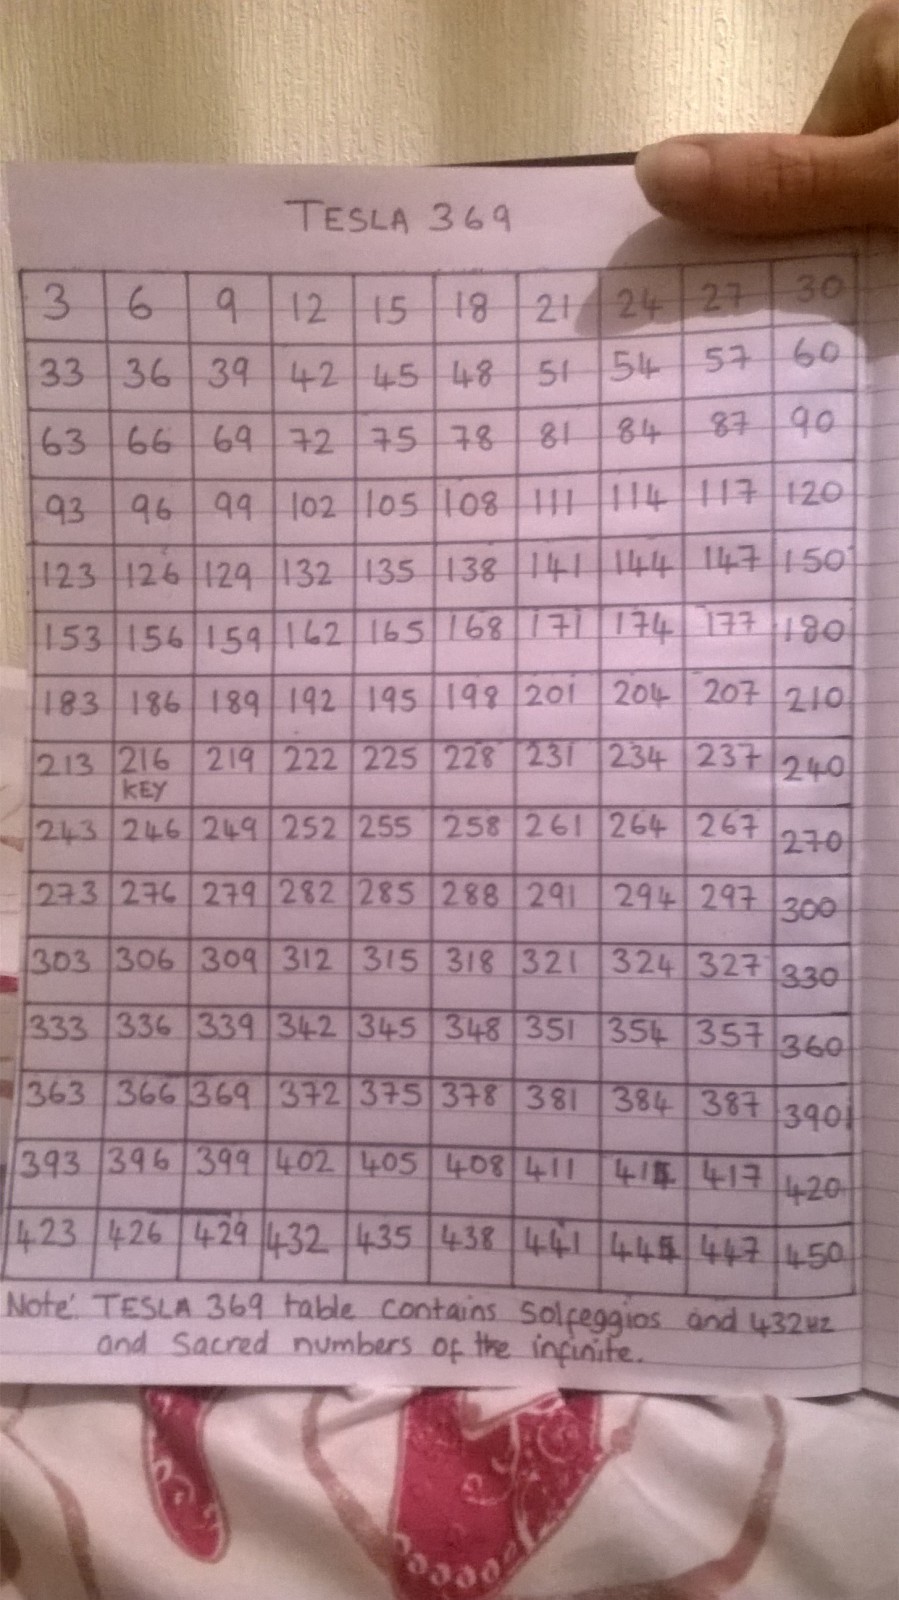 TESLA 369
3 6 9 12 15 18 21 24 27 30
33 36 39 42 45 48 51 54 57 60
63 66 69 72 75 78 81 84 87 90
93 96 99 102 105 108 111 114 117 120
123 126 129 132 135 138 141 144 147 150
153 156 159 162 165 168 171 174 177 180
183 186 189 192 195 198 201 204 207 210
213 216 219 222 225 228 231 234 237 240
KEY
243 246 249 252 255 258 261 264 267 270
273 276 279 282 285 288 291 294 297 300
303 306 309 312 315 318 321 324 327 330
333 336 339 342 345 348 351 354 357 360
363 366 369 372 375 378 381 384 387 390
393 396 399 402 405 408 411 414 417 420
423 426 429 432 435 438 441 444 447 450
Note: TESLA 369 table contains Solfeggios and 432Hz
and Sacred numbers of the infinite.